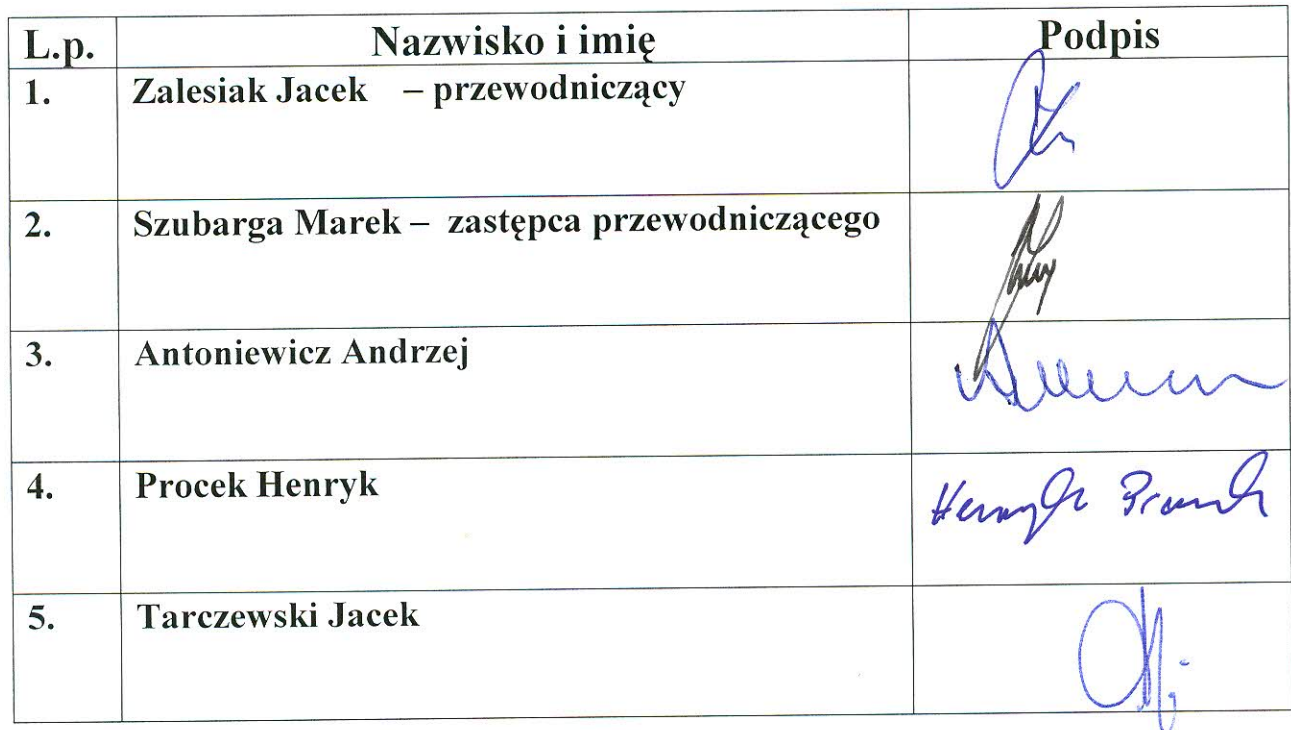 L.p. Nazwisko i imię Podpis
1. Zalesiak Jacek – przewodniczący
2. Szubarga Marek – zastępca przewodniczącego
3. Antoniewicz Andrzej
4. Procek Henryk Henryk Procek
5. Tarczewski Jacek